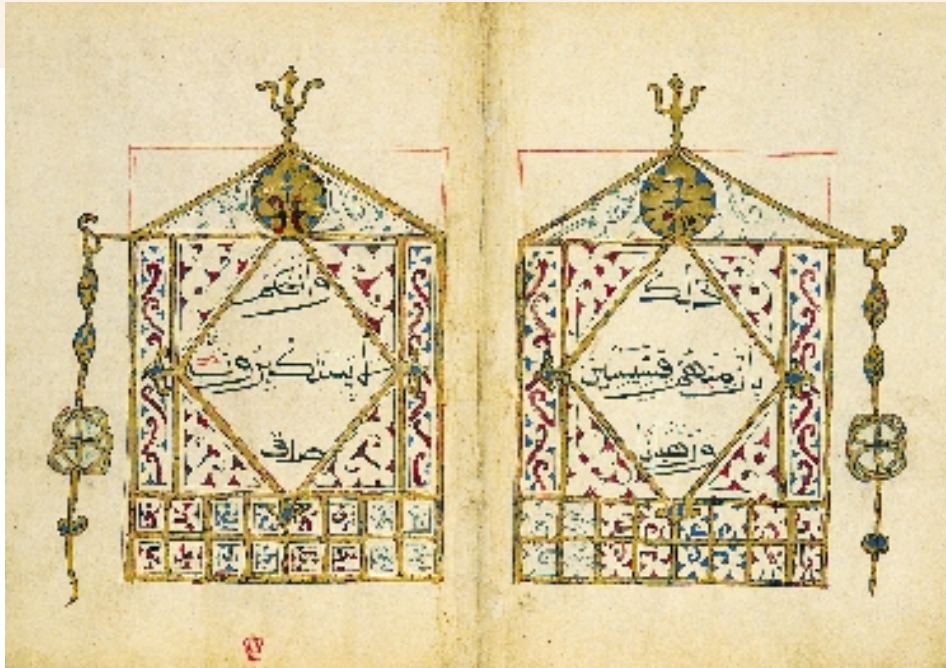 ذلك
بان منهم قسيسين
ورهبنا
وانهم
لا يستكبرون
صدق